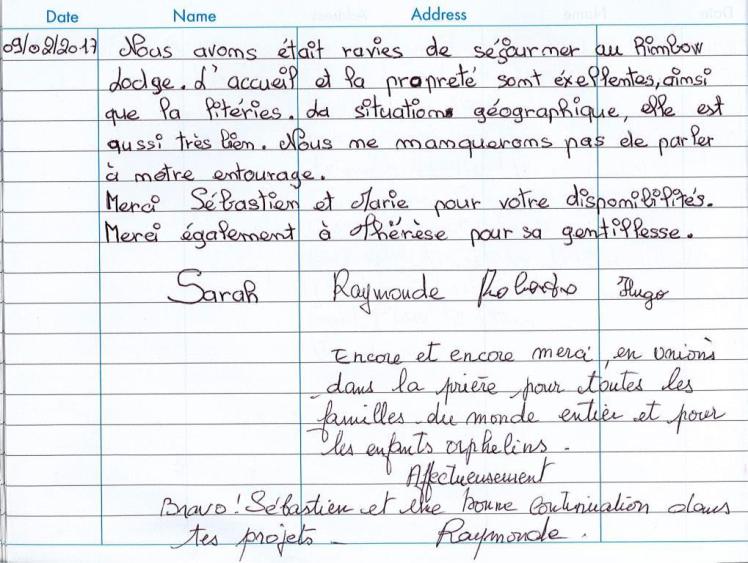 Date Name Address
09/02/2017 Nous avons était ravies de séjourner au Rinbow
Lodge. L'accueil et la propreté sont éxellentes, ainsi
que la litéries. La situation géographique, elle est
aussi très bien. Nous ne manquerons pas de parler
à notre entourage.
Merci Sébastien et Marie pour votre disponibilités.
Merci également à Thérèse pour sa gentillesse.
Sarah Raymonde Hugo
Encore et encore merci, en unions
dans la prière pour toutes les
familles du monde entier et pour
les enfants orphelins.
Affectueusement
Bravo! Sébastien et bonne continuation dans
tes projets - Raymonde.